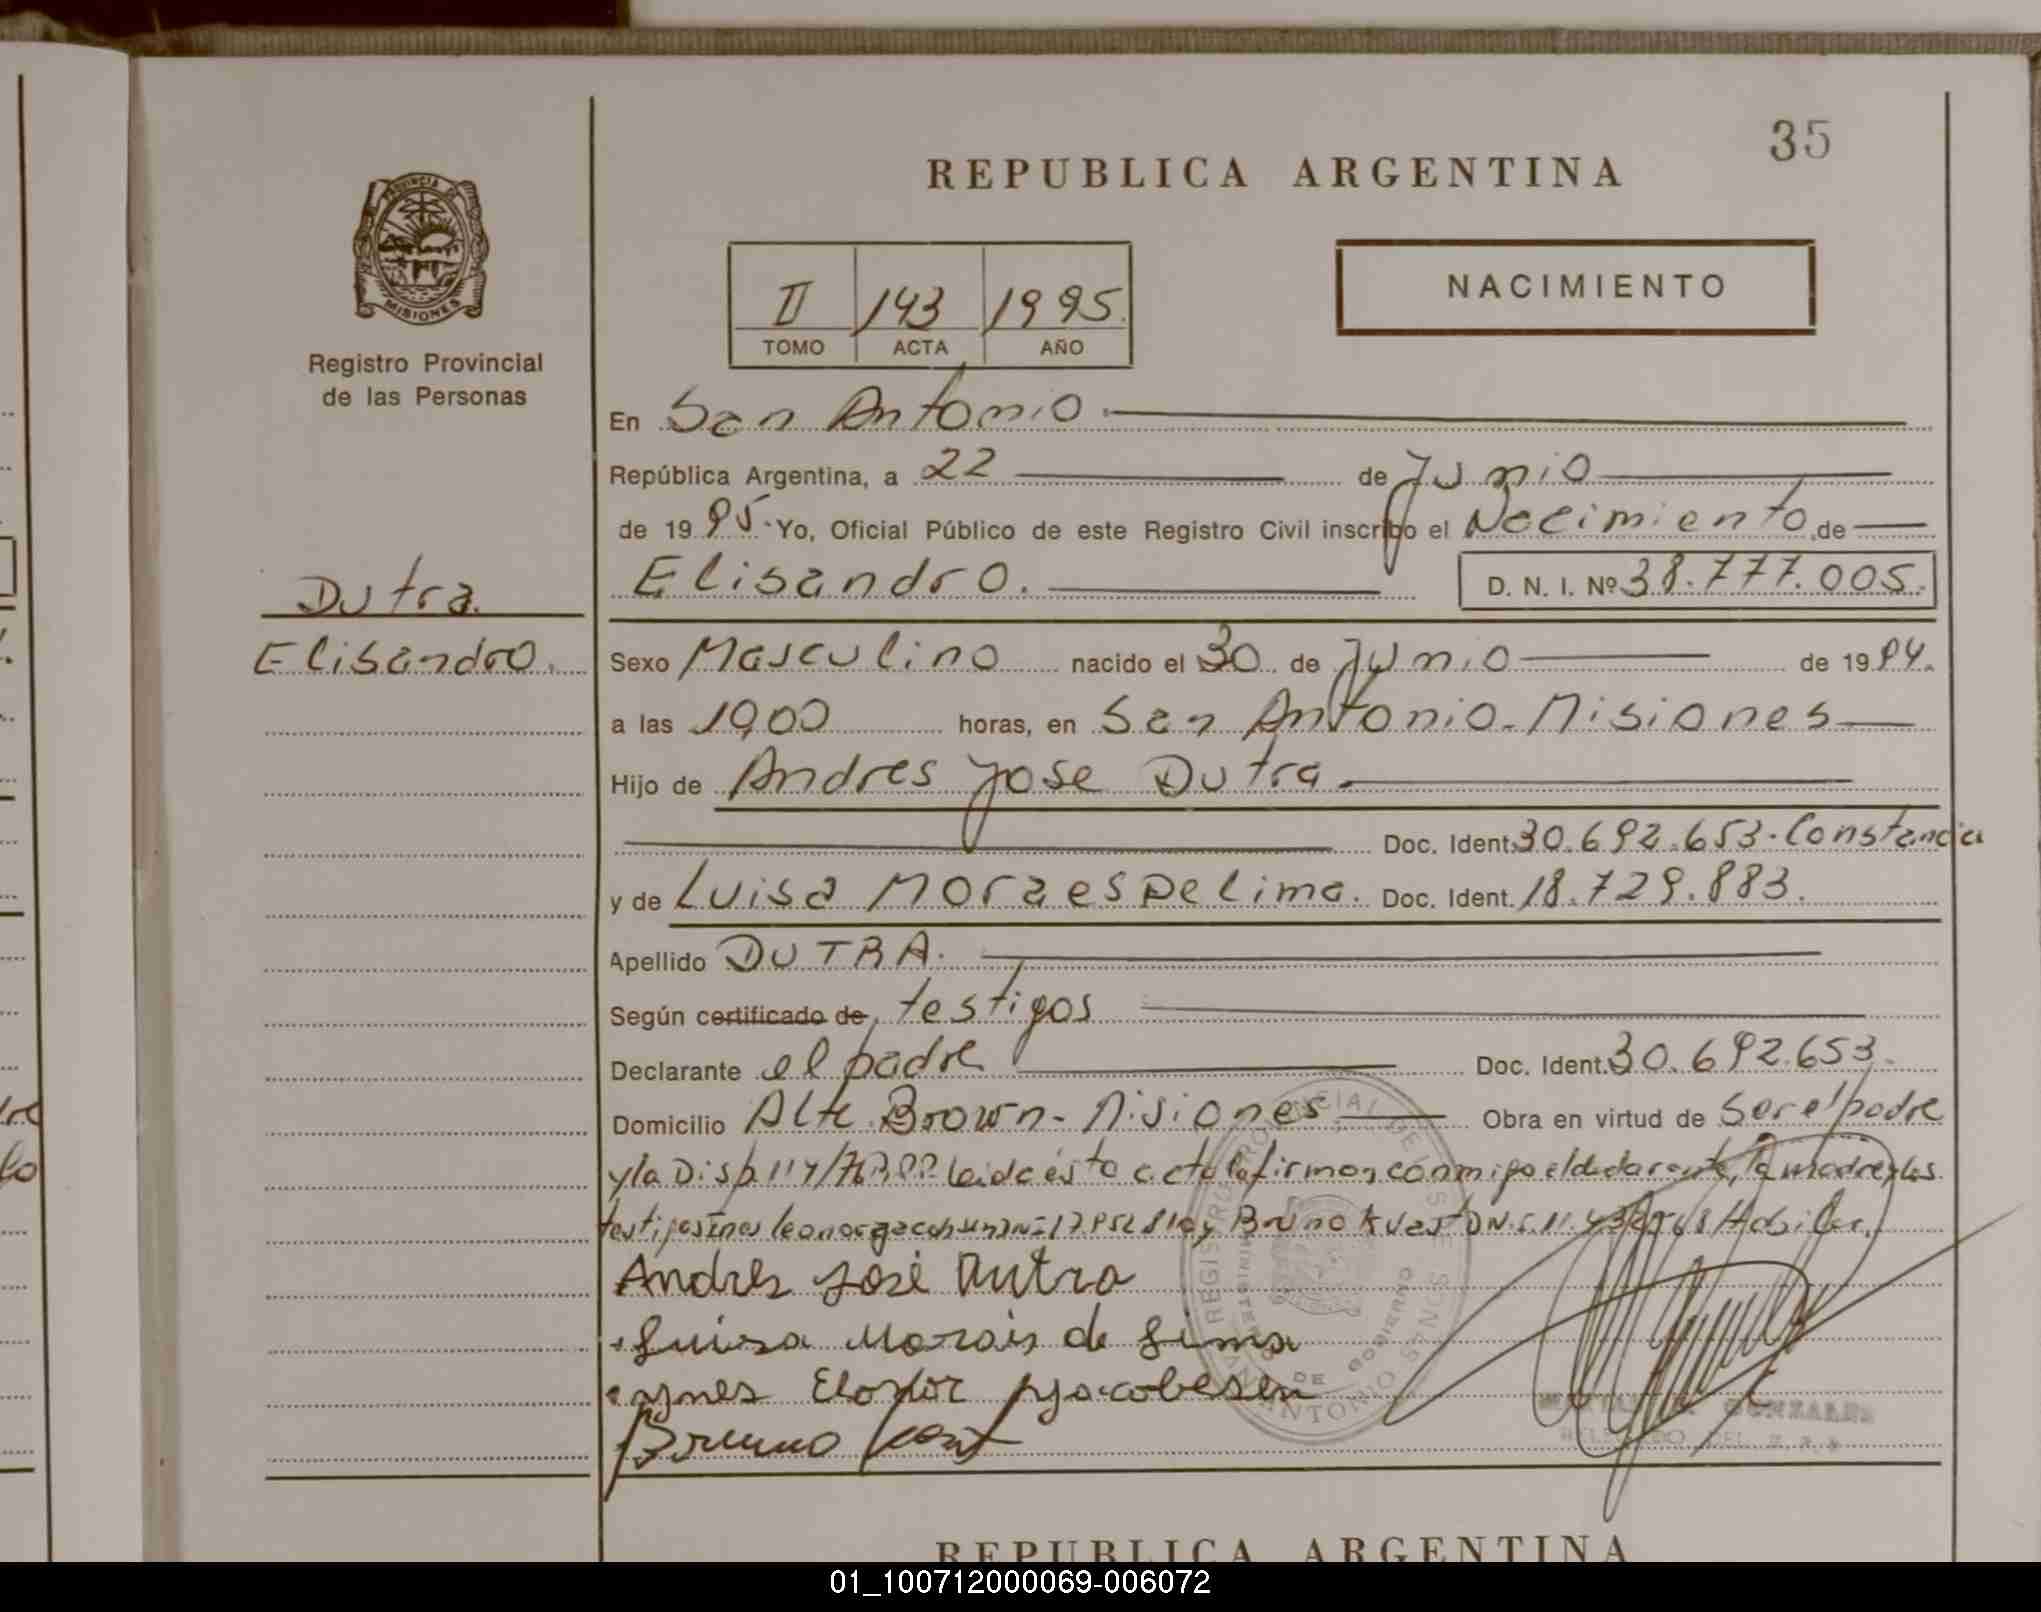 35
REPUBLICA ARGENTINA
PROVINCIA DE
MISIONES
II 143 1995.
TOMO ACTA AÑO
NACIMIENTO
Registro Provincial
de las Personas
En San Antonio.
República Argentina, a 22 de Junio
de 1995. Yo, Oficial Público de este Registro Civil inscribo el Nacimiento de
Dutra.
Elisandro. D. N. I. Nº 38.777.005.
Elisandro.
Sexo Masculino nacido el 30 de Junio de 1994.
a las 1900 horas, en San Antonio-Misiones
Hijo de Andres Jose Dutra
Doc. Ident. 30.692.653-Constancia
y de Luisa Moraes De lima. Doc. Ident. 18.729.883.
Apellido DUTRA.
Según certificado de, testigos
Declarante el padre Doc. Ident. 30.692.653.
Domicilio Alte. Brown-Misiones Obra en virtud de Ser el padre
y la Disp. 114/76 leida esta acta la firman conmigo el declarante, la madre y los
testigos Bruno
Andres José Dutra
Luisa Morais de Lima
Bruno
REGISTRO PROVINCIAL DE LAS PERSONAS
MINISTERIO DE GOBIERNO
SAN ANTONIO
GONZALEZ
REPUBLICA ARGENTINA
01_100712000069-006072